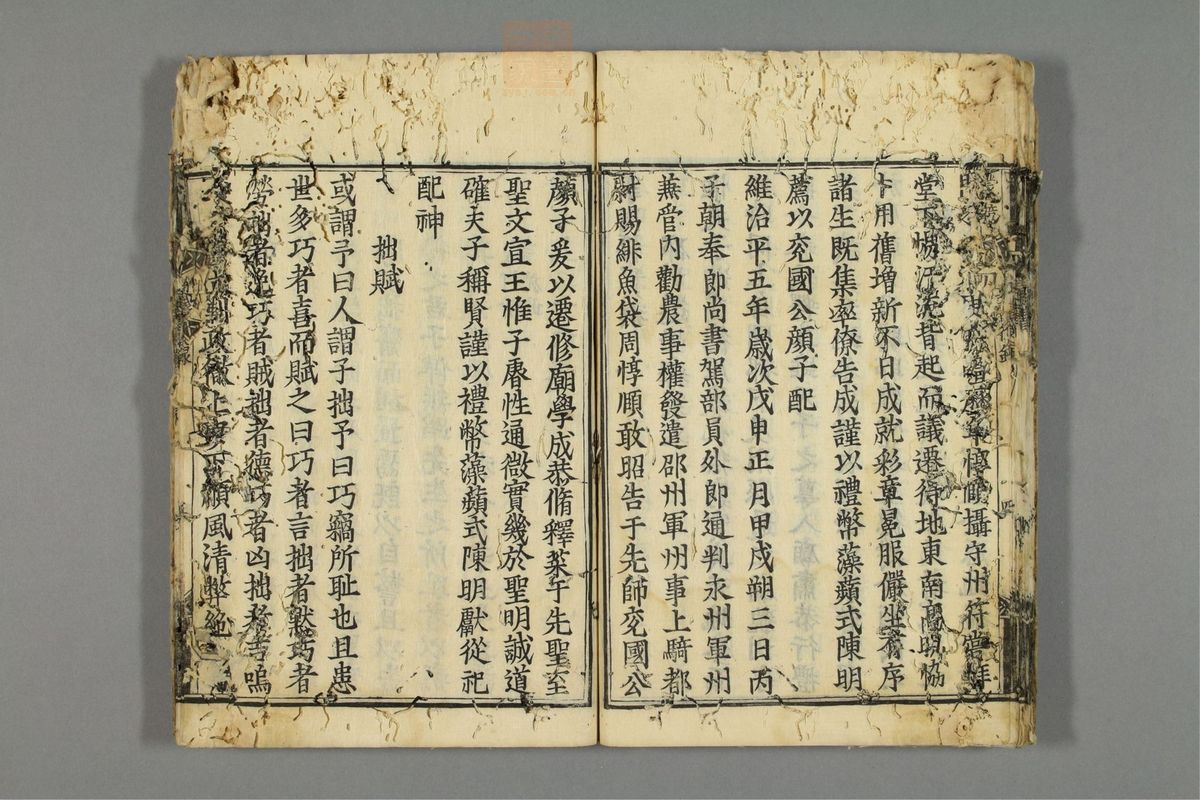 惇頤攝守州符嘗拜
堂下惕汗流背起而議遷得地東南髙明協
卜用舊增新不日成就彩章冕服儼坐有序
諸生既集率僚告成謹以禮幣藻蘋式陳明
薦以兖國公顔子配
維治平五年歲次戊申正月甲戌朔三日丙
子朝奉郎尚書駕部員外郎通判永州軍州
兼管内勸農事權發遣邵州軍州事上騎都
尉賜緋魚袋周惇頤敢昭告于先師兖國公
顔子爰以遷修廟學成恭脩釋菜于先聖至
聖文宣王惟子睿性通微實幾於聖明誠道
確夫子稱賢謹以禮幣藻蘋式陳明獻從祀
配神
拙賦
或謂予曰人謂子拙予曰巧竊所恥也且患
世多巧者喜而賦之曰巧者言拙者默巧者
勞拙者逸巧者賊拙者德巧者凶拙者吉嗚
刑政徹上安下順風清弊絶